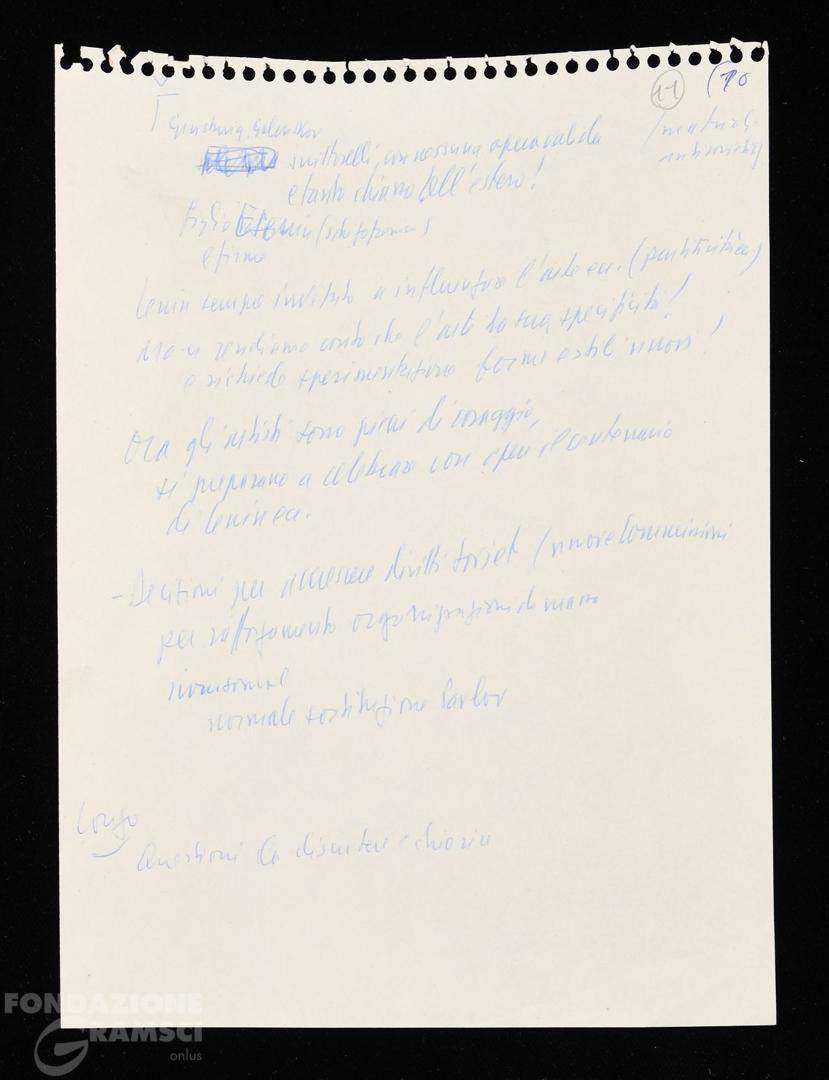 11 (10
Ginsburg, Galanskov
scrittorelli, con nessuna opera valida
e tanto chiasso dell'estero!
Figlio Esenin (schizofrenico)
e firme
Lenin sempre invitato a influenzare l'arte ecc. (partiticità)
Ma ci rendiamo conto che l'arte ha sua specificità!
e richiede sperimentazione forme e stili nuovi!
Ora gli artisti sono pieni di coraggio,
si preparano a celebrare con opere il centenario
di Lenin ecc.
- Decisioni per accrescere diritti Soviet (nuove Commissioni
per rafforzamento organizzazioni di massa
normale sostituzione Pavlov
Longo
Questioni da discutere e chiarire